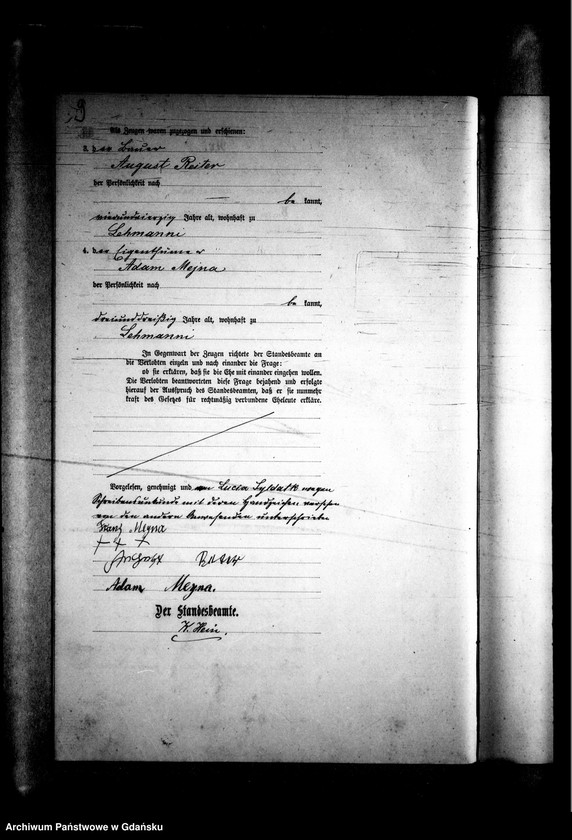 9
Als Zeugen waren zugezogen und erschienen:
3. der Bauer
August Reiter
der Persönlichkeit nach
— be kannt,
vierundvierzig Jahre alt, wohnhaft zu
Lehmanni
4. der Eigenthümer
Adam Mejna
der Persönlichkeit nach
be kannt,
dreiunddreißig Jahre alt, wohnhaft zu
Lehmanni
In Gegenwart der Zeugen richtete der Standesbeamte an
die Verlobten einzeln und nach einander die Frage:
ob sie erklären, daß sie die Ehe mit einander eingehen wollen.
Die Verlobten beantworteten diese Frage bejahend und erfolgte
hierauf der Ausspruch des Standesbeamten, daß er sie nunmehr
kraft des Gesetzes für rechtmäßig verbundene Eheleute erkläre.
Vorgelesen, genehmigt und von Lucia Syldatk wegen
Schreibensunkunde mit deren Handzeichen versehen
von den andern Anwesenden unterschrieben
Franz Mejna
+ + +
August Reiter
Adam Mejna.
Der Standesbeamte.
K. Hein.
Archiwum Państwowe w Gdańsku